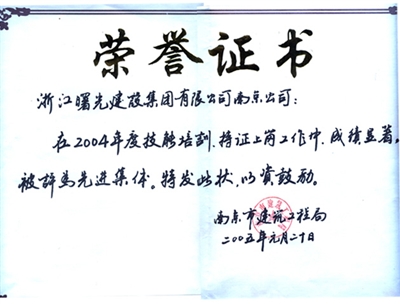 荣誉证书
浙江曙光建设集团有限公司南京公司：
在2004年度技能培训、持证上岗工作中，成绩显著。
被评为先进集体。特发此状，以资鼓励。
南京市建筑工程局
二00五年元月二十日